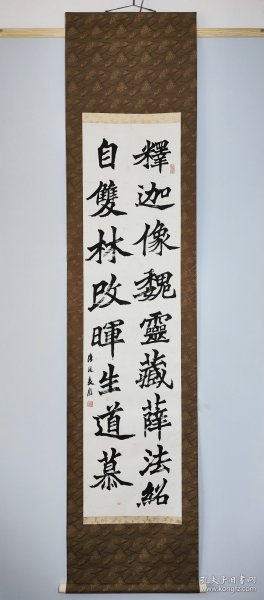 釋迦像魏靈藏薛法紹
自雙林改暉生道慕
孔夫子旧书网
www.kongfz.com